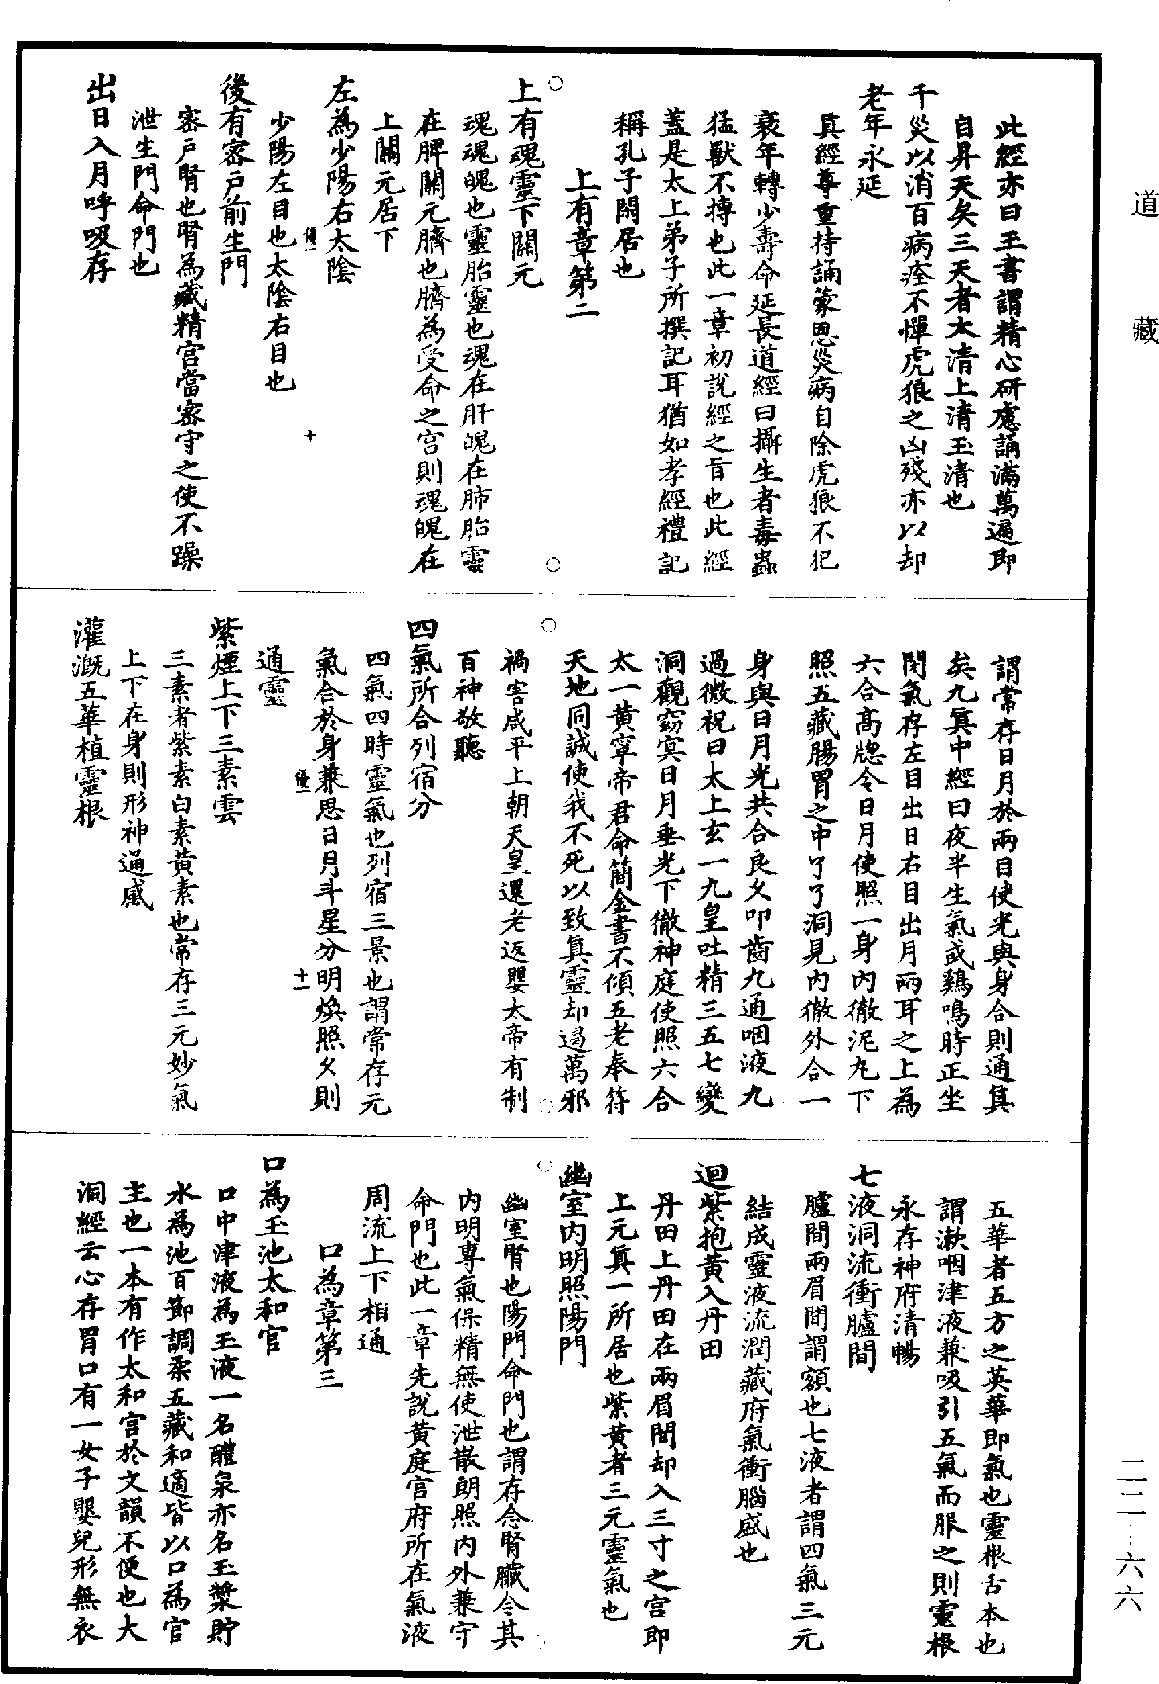 道藏
此經亦曰玉書謂精心研慮誦滿萬遍即
自昇天矣三天者太清上清玉清也
千災以消百病痊不憚虎狼之凶殘亦以却
老年永延
真經尊重持誦蒙恩災病自除虎狼不犯
衰年轉少壽命延長道經曰攝生者毒蟲
猛獸不搏也此一章初說經之旨也此經
蓋是太上弟子所撰記耳猶如孝經禮記
稱孔子閒居也
上有章第二
上有魂靈下關元
魂魂魄也靈胎靈也魂在肝魄在肺胎靈
在脾關元臍也臍為受命之宮則魂魄在
上關元居下
左為少陽右太陰
十
少陽左目也太陰右目也
後有密戶前生門
密戶腎也腎為藏精宮當密守之使不躁
泄生門命門也
出日入月呼吸存
謂常存日月於兩目使光與身合則通真
矣九真中經曰夜半生氣或鷄鳴時正坐
閉氣存左目出日右目出月兩耳之上為
六合高牎令日月使照一身內徹泥丸下
照五藏腸胃之中了了洞見內徹外合一
身與日月光共合良久叩齒九通咽液九
過微祝曰太上玄一九皇吐精三五七變
洞觀窈冥日月垂光下徹神庭使照六合
太一黃寧帝君命簡金書不傾五老奉符
天地同誠使我不死以致真靈却遏萬邪
禍害咸平上朝天皇還老返嬰太帝有制
百神敬聽
四氣所合列宿分
四氣四時靈氣也列宿三景也謂常存元
氣合於身兼思日月斗星分明煥照久則
十一
通靈
紫煙上下三素雲
三素者紫素白素黃素也常存三元妙氣
上下在身則形神通感
灌溉五華植靈根
五華者五方之英華即氣也靈根舌本也
謂漱咽津液兼吸引五氣而服之則靈根
永存神府清暢
七液洞流衝臚間
臚間兩眉間謂額也七液者謂四氣三元
結成靈液流潤藏府氣衝腦盛也
迴紫抱黃入丹田
丹田上丹田在兩眉間却入三寸之宮即
上元真一所居也紫黃者三元靈氣也
幽室內明照陽門
幽室腎也陽門命門也謂存念腎臟令其
內明專氣保精無使泄散朗照內外兼守
命門也此一章先說黃庭宮府所在氣液
周流上下相通
口為章第三
口為玉池太和官
口中津液為玉液一名醴泉亦名玉漿貯
水為池百節調柔五藏和適皆以口為官
主也一本有作太和宮於文韻不便也大
洞經云心存胃口有一女子嬰兒形無衣
二二—六六